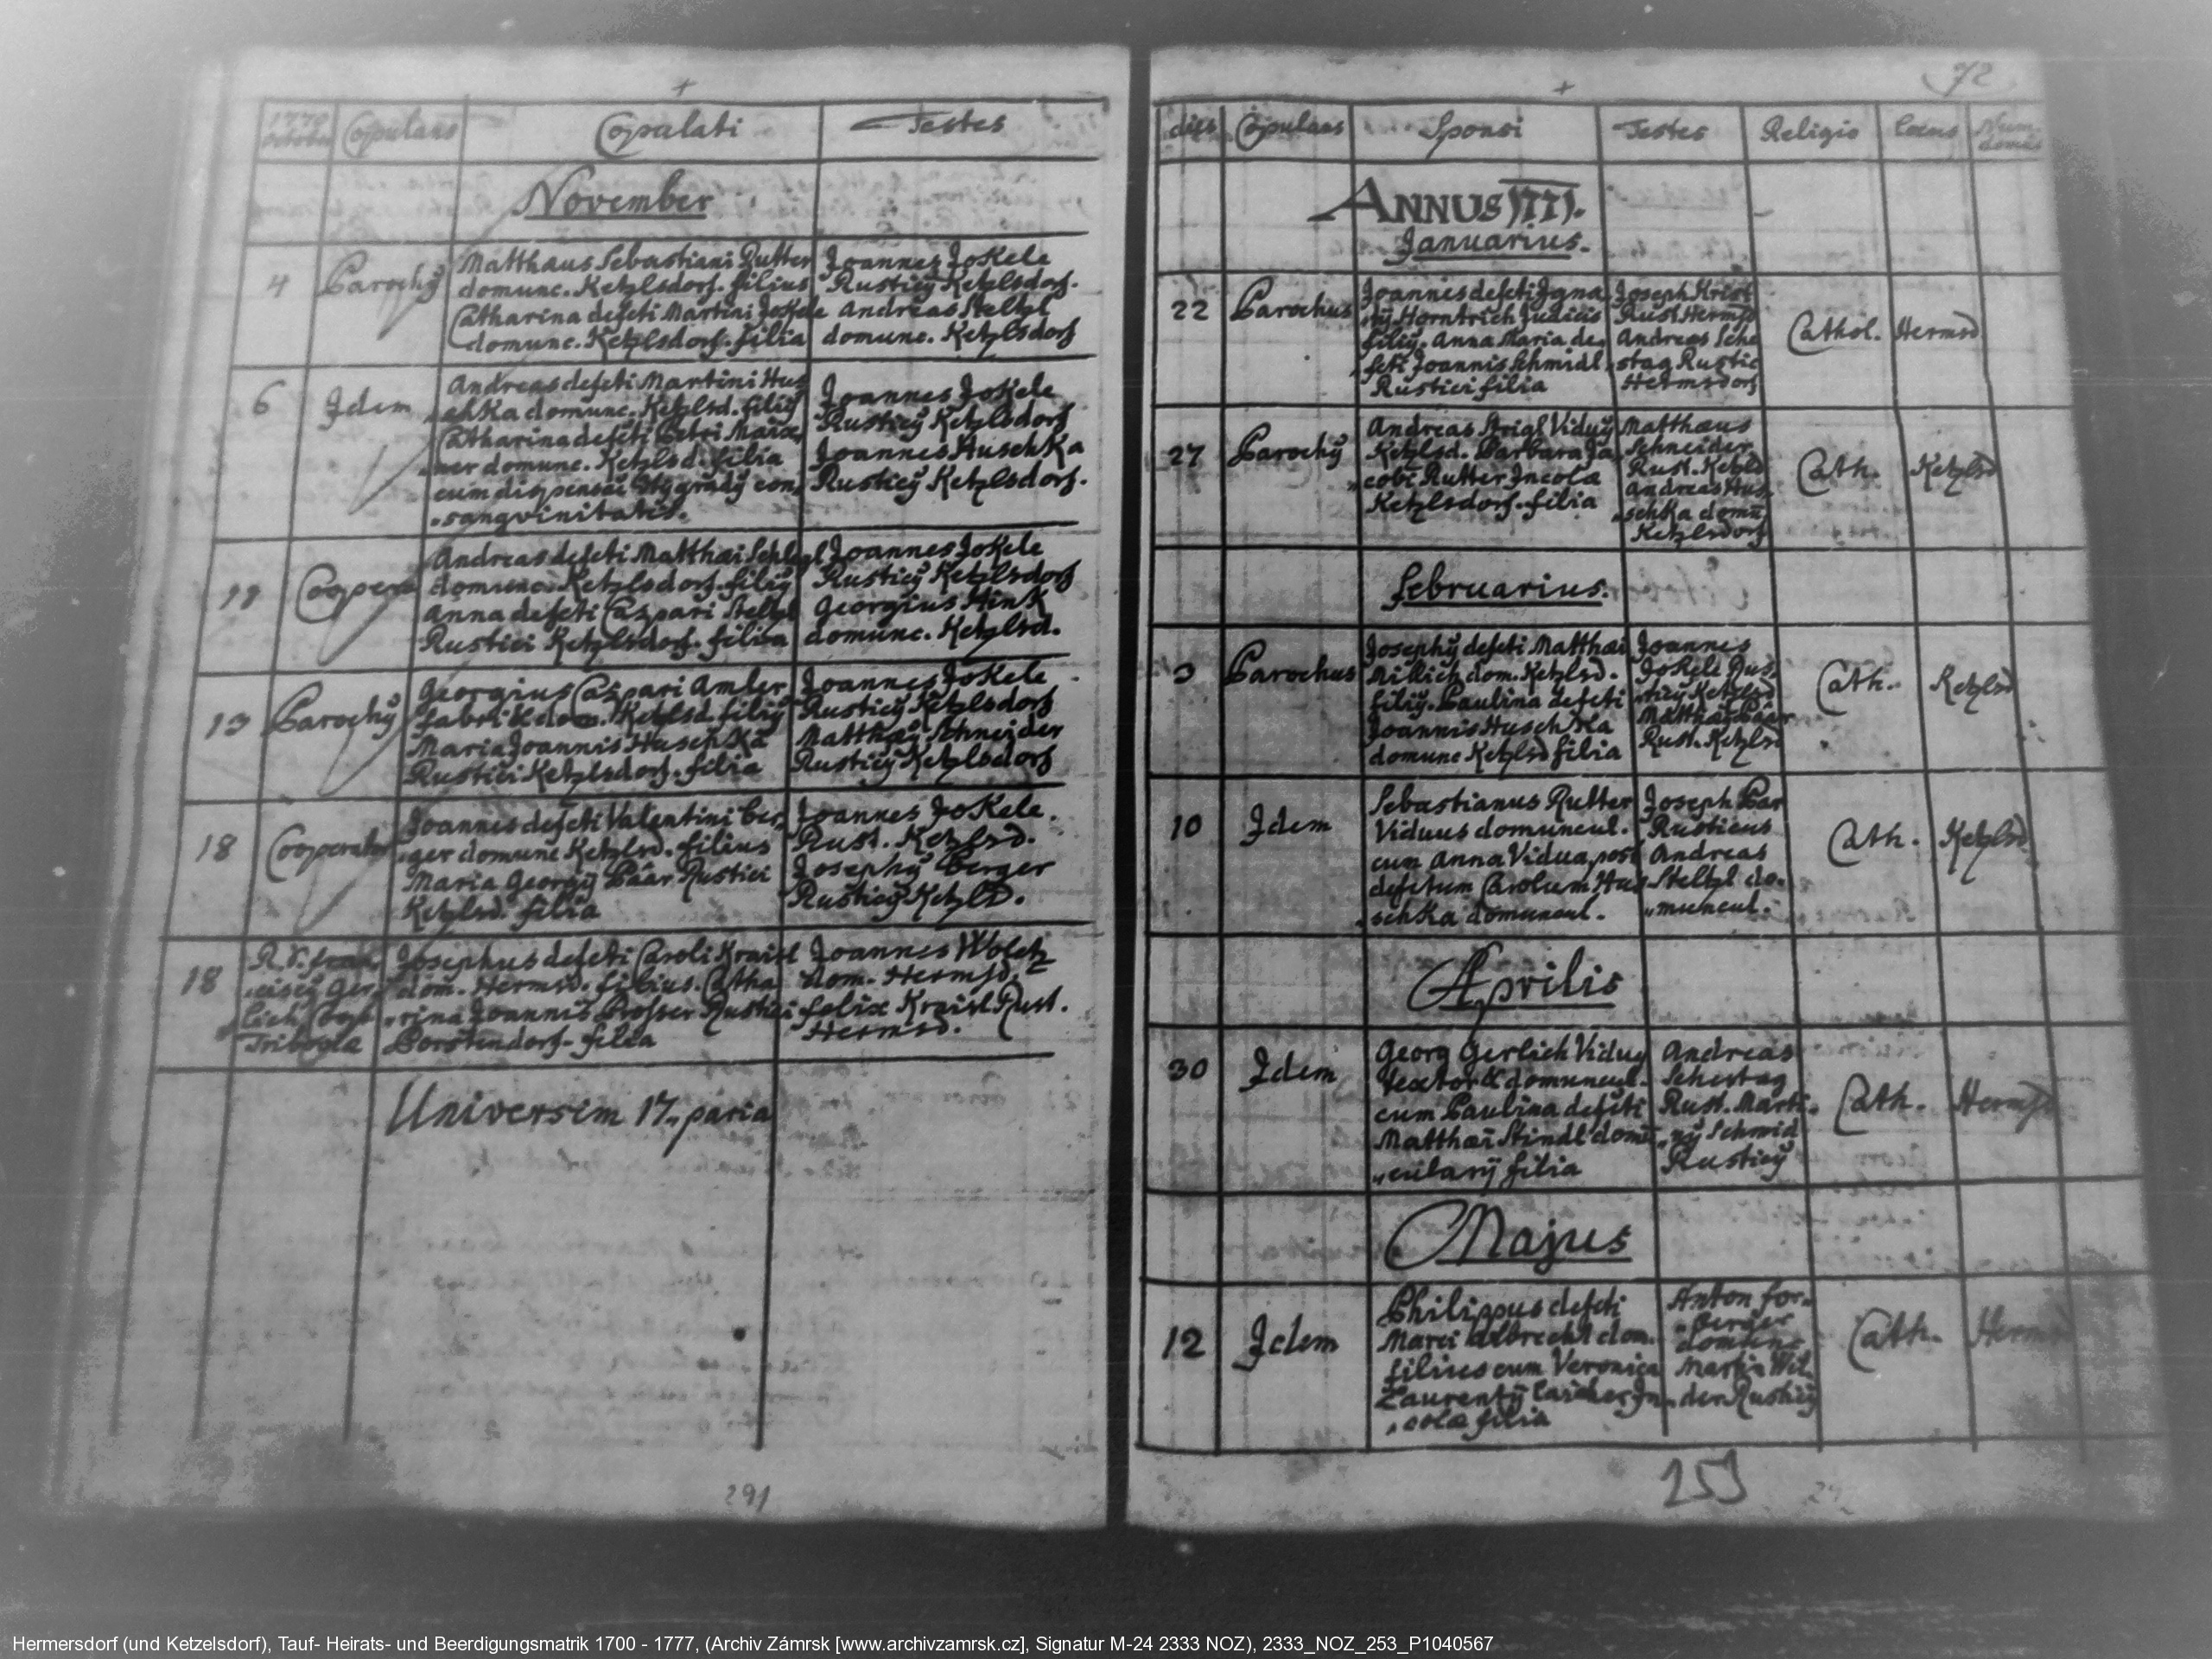 +
1770
Octobe
Copulans
Copulati
Testes
November
4
Parochy
Matthaus Sebastiani Rutter
domunc. Ketzlsdorf. filius
Catharina defcti Martini Jokele
domunc. Ketzlsdorf. filia
Joannes Jokele
Rusticÿ Ketzlsdorf.
Andreas Steltzl
domunc. Ketzlsdorf
6
Idem
Andreas defcti Martini Hus
„chka domunc. Ketzlsd. filiÿ
Catharina defcti Petri
ner domunc. Ketzlsd. filia
cum con„
„sangvinitatis.
Joannes Jokele
Rusticÿ Ketzlsdorf
Joannes Huschka
Rusticÿ Ketzlsdorf.
11
Coopera
Andreas defcti Matthæi Schlegl
domunc. Ketzlsdorf. filiÿ
Anna defcti Caspari Steltzl
Rustici Ketzlsdorf. filia
Joannes Jokele
Rusticÿ Ketzlsdorf
Georgius Hink
domunc. Ketzlsd.
13
Parochÿ
Georgius Caspari Amler
fabri & dom. Ketzlsd. filiÿ
Maria Joannis Huschka
Rustici Ketzlsdorf. filia
Joannes Jokele
Rusticÿ Ketzlsdorf
Matthæÿ Schneider
Rusticÿ Ketzlsdorf
18
Cooperator
Joannes defcti Valentini Ber„
„ger domunc Ketzlsd. filius
Maria Georgÿ Päar Rustici
Ketzlsd. filia
Joannes Jokele.
Rust. Ketzlsd.
Josephÿ Berger
Rusticÿ Ketzlsd.
18
R.D. fran„
„ciscÿ Ger„
„lich Coop
Tribogiæ
Josephus defcti Caroli Kraisl
dom. Hermsd. filius. Catha
„rina Joannis Prosser Rustici
Porstendorf. filia
Joannes Woletz
dom. Hermsd. &
felix Kraisl Rust.
Hermsd.
Universim 17„ paria
291
72
+
dies
Copulans
Sponsi
Testes
Religio
Locus
Num.
domus
ANNUS 1771.
Januarius.
22
Parochus
Joannes defcti Igna„
„tÿ Horntrich Judicis
filiÿ. Anna Maria de„
„fcti Joannis Schmidl
Rustici filia
Joseph Kreisl
Rust Hermsd
Andreas Sche
„stag Rustic
Hermsdorf
Cathol.
Hermsd
27
Parochÿ
Andreas Strigl Viduÿ
Ketzlsd. Barbara Ja„
„cobi Rutter Incolæ
Ketzlsdorf. filia
Matthæus
Schneider
Rust. Ketzlsd
Andreas Hus„
„schka domu
Ketzlsdorf
Cath.
Ketzlsd
februarius.
3
Parochus
Josephÿ defcti Matthæi
Millich dom. Ketzlsd.
filiÿ. Paulina defcti
Joannis Huschka
domunc Ketzlsd filia
Joannes
Jokele Rus„
„ticÿ Ketzlsd
Matthæÿ Päar
Rust. Ketzlsd
Cath.
Ketzlsd
10
Idem
Sebastianus Rutter
Viduus domuncul.
cum Anna Vidua post
defctum Carolum Hus
„schka domuncul.
Joseph Par
Rusticus
Andreas
Steltzl do„
„muncul.
Cath.
Ketzlsd
Aprilis
30
Idem
Georg Gerlich Viduÿ
textor & domuncul.
cum Paulina defcti
Matthæi Stindl domu
„culary filia
Andreas
Schestag
Rust. Marti„
„nÿ Schmid
Rusticÿ
Cath.
Hermsd
Majus
12
Idem
Philippus defcti
Marci Albrecht dom.
filius cum Veronica
Laurentÿ In„
„colæ filia
Anton for„
„berger
domunc
Martin Wil„
„der Rusticÿ
Cath.
Hermsd
253
Hermersdorf (und Ketzelsdorf), Tauf- Heirats- und Beerdigungsmatrik 1700 - 1777, (Archiv Zámrsk [www.archivzamrsk.cz], Signatur M-24 2333 NOZ), 2333_NOZ_253_P1040567